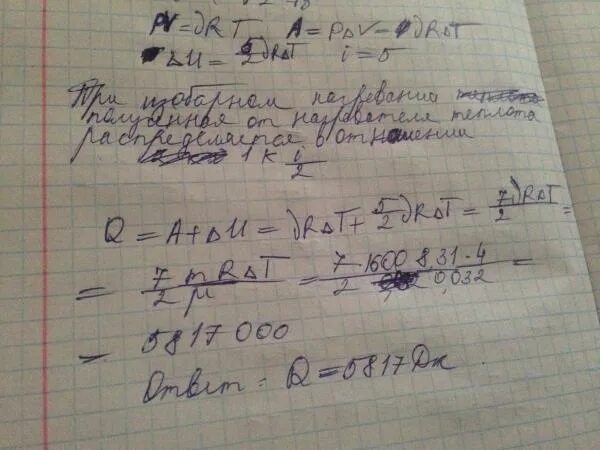 PV = νRT A = PΔV – νRΔT
ΔU = 5/2 νRΔT i = 5
При изобарном нагревании
полученная от нагревателя теплота
распределяется в отношении
1 к i/2
Q = A + ΔU = νRΔT + 5/2 νRΔT = 7/2 νRΔT =
= 7/2 mRΔT/μ = 7·1600·8,31·4 / 2·0,032 =
= 5817000
Ответ: Q = 5817 Дж.